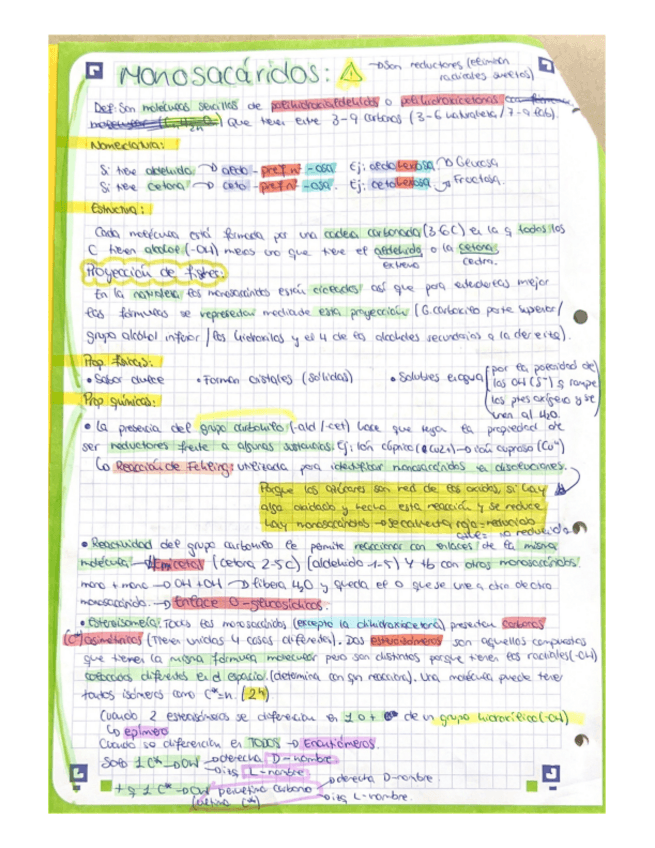 Monosacáridos: ⚠ → Son reductores (eliminan
radicales sueltos)
Def: Son moléculas sencillas de polihidroxialdehidos o polihidroxicetonas
que tienen entre 3-9 carbonos (3-6 naturaleza / 7-9 lab).
Nomenclatura:
Si tiene aldehido → aldo - pref nº - osa. Ej: aldohexosa → Glucosa
Si tiene cetona → ceto - pref nº - osa. Ej: cetohexosa → Fructosa.
Estructura:
Cada molécula está formada por una cadena carbonada (3-6C) en la q todos los
C tienen alcohol (-OH) menos uno que tiene el aldehido o la cetona.
extremo centro.
Proyección de fisher:
En la naturaleza los monosacáridos están ciclados así que para entenderlas mejor
las fórmulas se representan mediante esta proyección (G. carbonilo parte superior/
grupo alcohol inferior / los hidroxilos y el H de los alcoholes secundarios a la derecha).
Prop físicas:
• Sabor dulce • Forman cristales (sólidos) • Solubles en agua
(por la polaridad de
los OH (δ-) q rompe
los ptes oxígeno y se
unen al H2O.
Prop químicas:
• La presencia del grupo carbonilo (-ald / cet) hace que tengan la propiedad de
ser reductores frente a algunas sustancias. Ej: ión cúprico (Cu2+) → ión cuproso (Cu+)
↳ Reacción de Fehling: utilizada para identificar monosacáridos en disoluciones.
Porque los azúcares son red de los oxidos, si hay
algo oxidado y hecho esta reacción y se reduce
hay monosacáridos → se convierte rojo = reducido
azul = no reducido
• Reactividad del grupo carbonilo le permite reaccionar con enlaces de la misma
molécula → Hemicetal (cetona 2-5 C) (aldehido 1-5) Y tb con otros monosacáridos.
mono + mono → OH + OH → libera H2O y queda el O que se une a otro de otro
monosacárido. → Enlace O-glucosídicos.
• Esteroisomería: Todos los monosacáridos (excepto la dihidroxiacetona) presentan carbonos
(C*) asimétricos (Tienen unidas 4 cosas diferentes). Dos estereoisómeros son aquellos compuestos
que tienen la misma fórmula molecular pero son distintos porque tienen los radicales (-OH)
colocados diferentes en el espacio. (determina con qn reacciona). Una molécula puede tener
tantos isómeros como C*=n. (2n)
Cuando 2 estereoisómeros se diferencian en 1 o + de un grupo hidroxílico (-OH)
↳ epímero
Cuando se diferencian en TODOS → Enantiómeros.
Solo 1 C* → OH → derecha D-nombre
→ izq L-nombre
+ q 1 C* → OH penúltimo carbono → derecha D-nombre.
(último C*) → izq L-nombre.